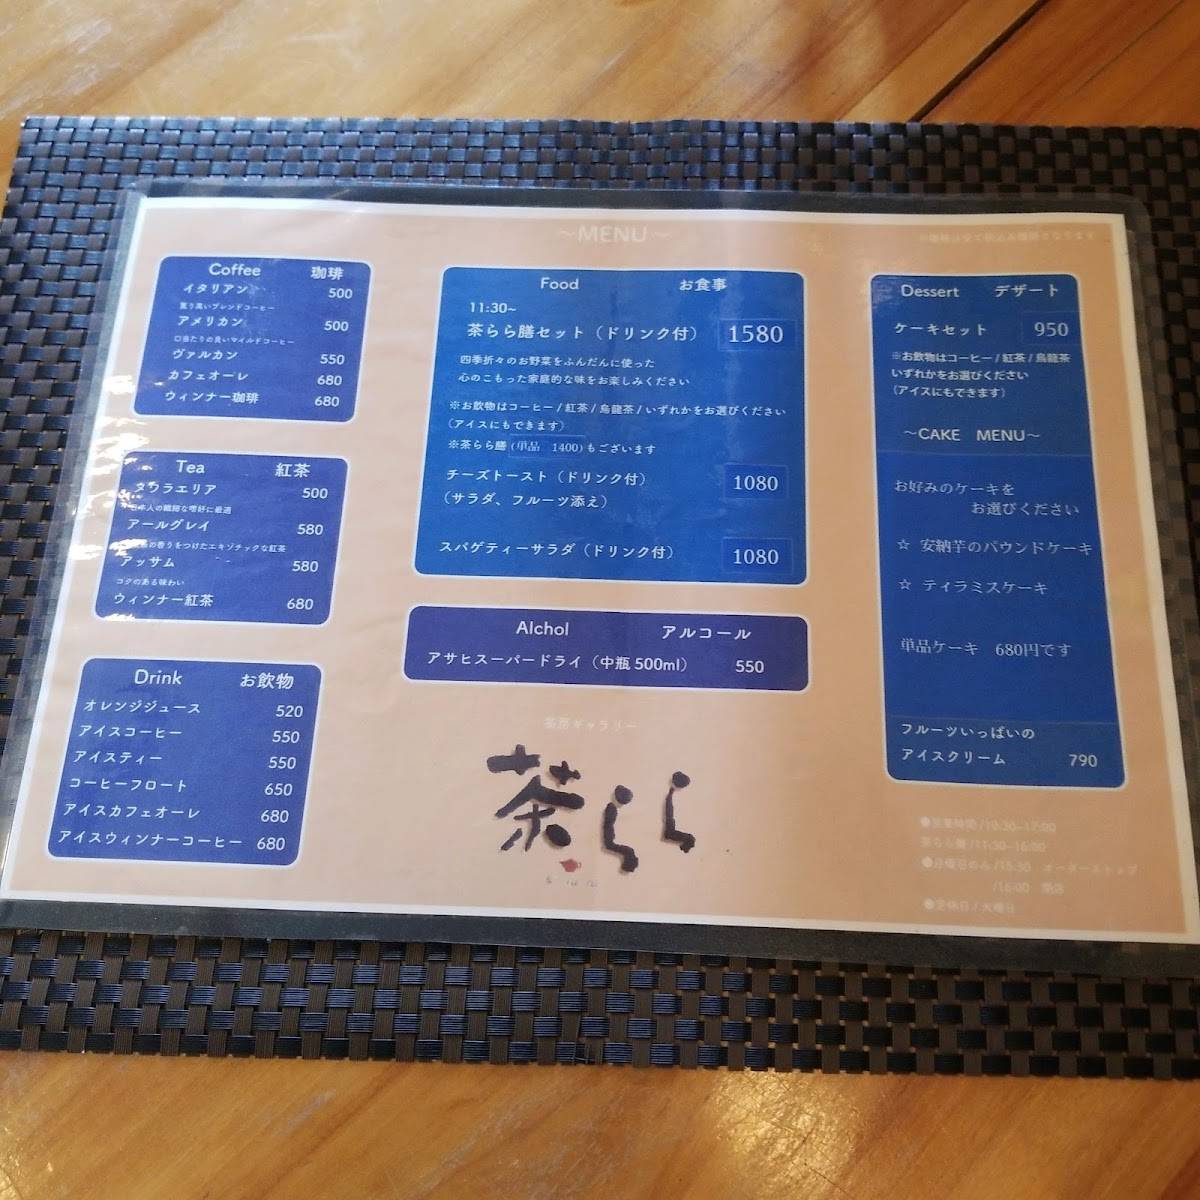 ～MENU～
※価格は全て税込み価格となります
Coffee 珈琲
イタリアン 500
薫り高いブレンドコーヒー
アメリカン 500
口当たりの良いマイルドコーヒー
ヴァルカン 550
カフェオーレ 680
ウィンナー珈琲 680
Tea 紅茶
ヌワラエリア 500
日本人の繊細な嗜好に最適
アールグレイ 580
の香りをつけたエキゾチックな紅茶
アッサム 580
コクのある味わい
ウィンナー紅茶 680
Drink お飲物
オレンジジュース 520
アイスコーヒー 550
アイスティー 550
コーヒーフロート 650
アイスカフェオーレ 680
アイスウィンナーコーヒー 680
Food お食事
11:30~
茶らら膳セット（ドリンク付） 1580
四季折々のお野菜をふんだんに使った
心のこもった家庭的な味をお楽しみください
※お飲物はコーヒー/紅茶/烏龍茶/いずれかをお選びください
（アイスにもできます）
※茶らら膳(単品 1400)もございます
チーズトースト（ドリンク付） 1080
（サラダ、フルーツ添え）
スパゲティーサラダ（ドリンク付） 1080
Alchol アルコール
アサヒスーパードライ（中瓶500ml） 550
茶房ギャラリー
茶らら
Dessert デザート
ケーキセット 950
※お飲物はコーヒー/紅茶/烏龍茶
いずれかをお選びください
（アイスにもできます）
～CAKE MENU～
お好みのケーキを
お選びください
☆ 安納芋のパウンドケーキ
☆ ティラミスケーキ
単品ケーキ 680円です
フルーツいっぱいの
アイスクリーム 790
●営業時間/10:30~17:00
茶らら膳/11:30~16:00
●日曜日のみ/15:30 オーダーストップ
/16:00 閉店
●定休日/火曜日